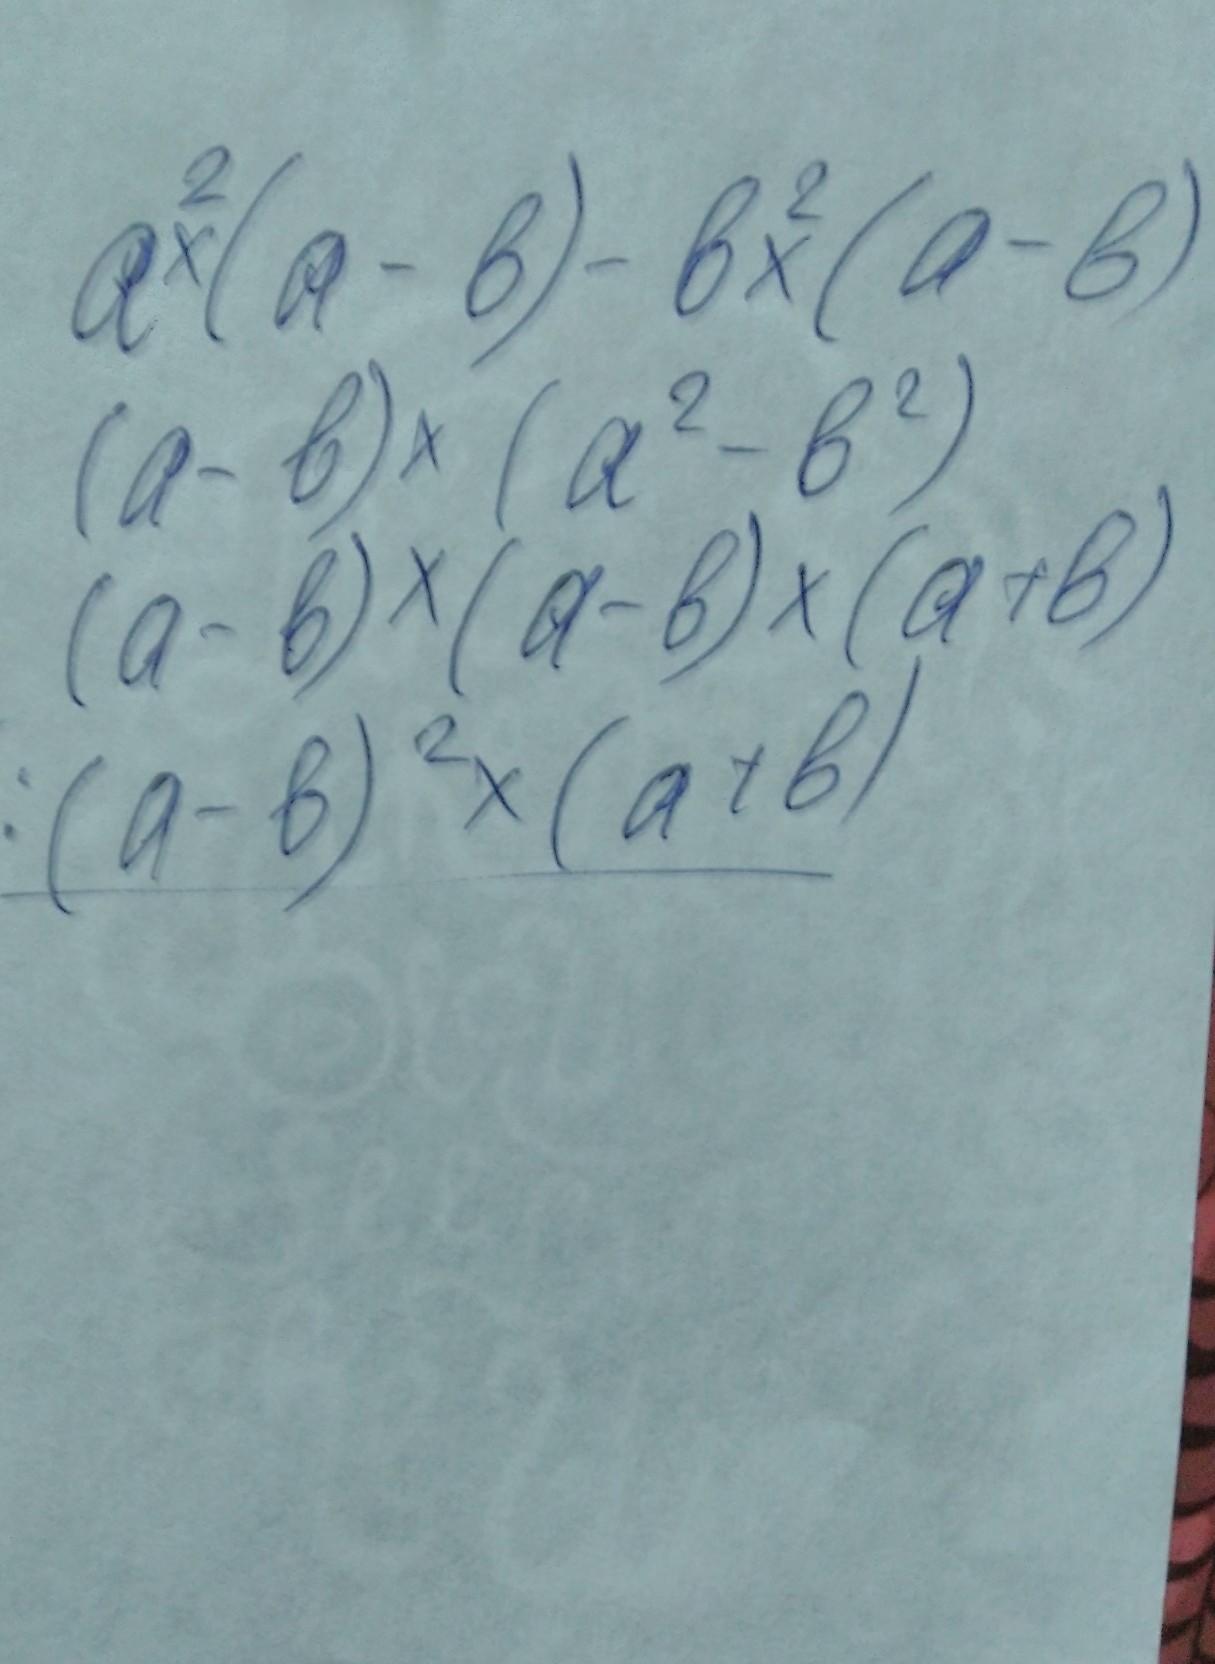 a²×(a-b)-b²×(a-b)
(a-b)×(a²-b²)
(a-b)×(a-b)×(a+b)
:(a-b)²×(a+b)